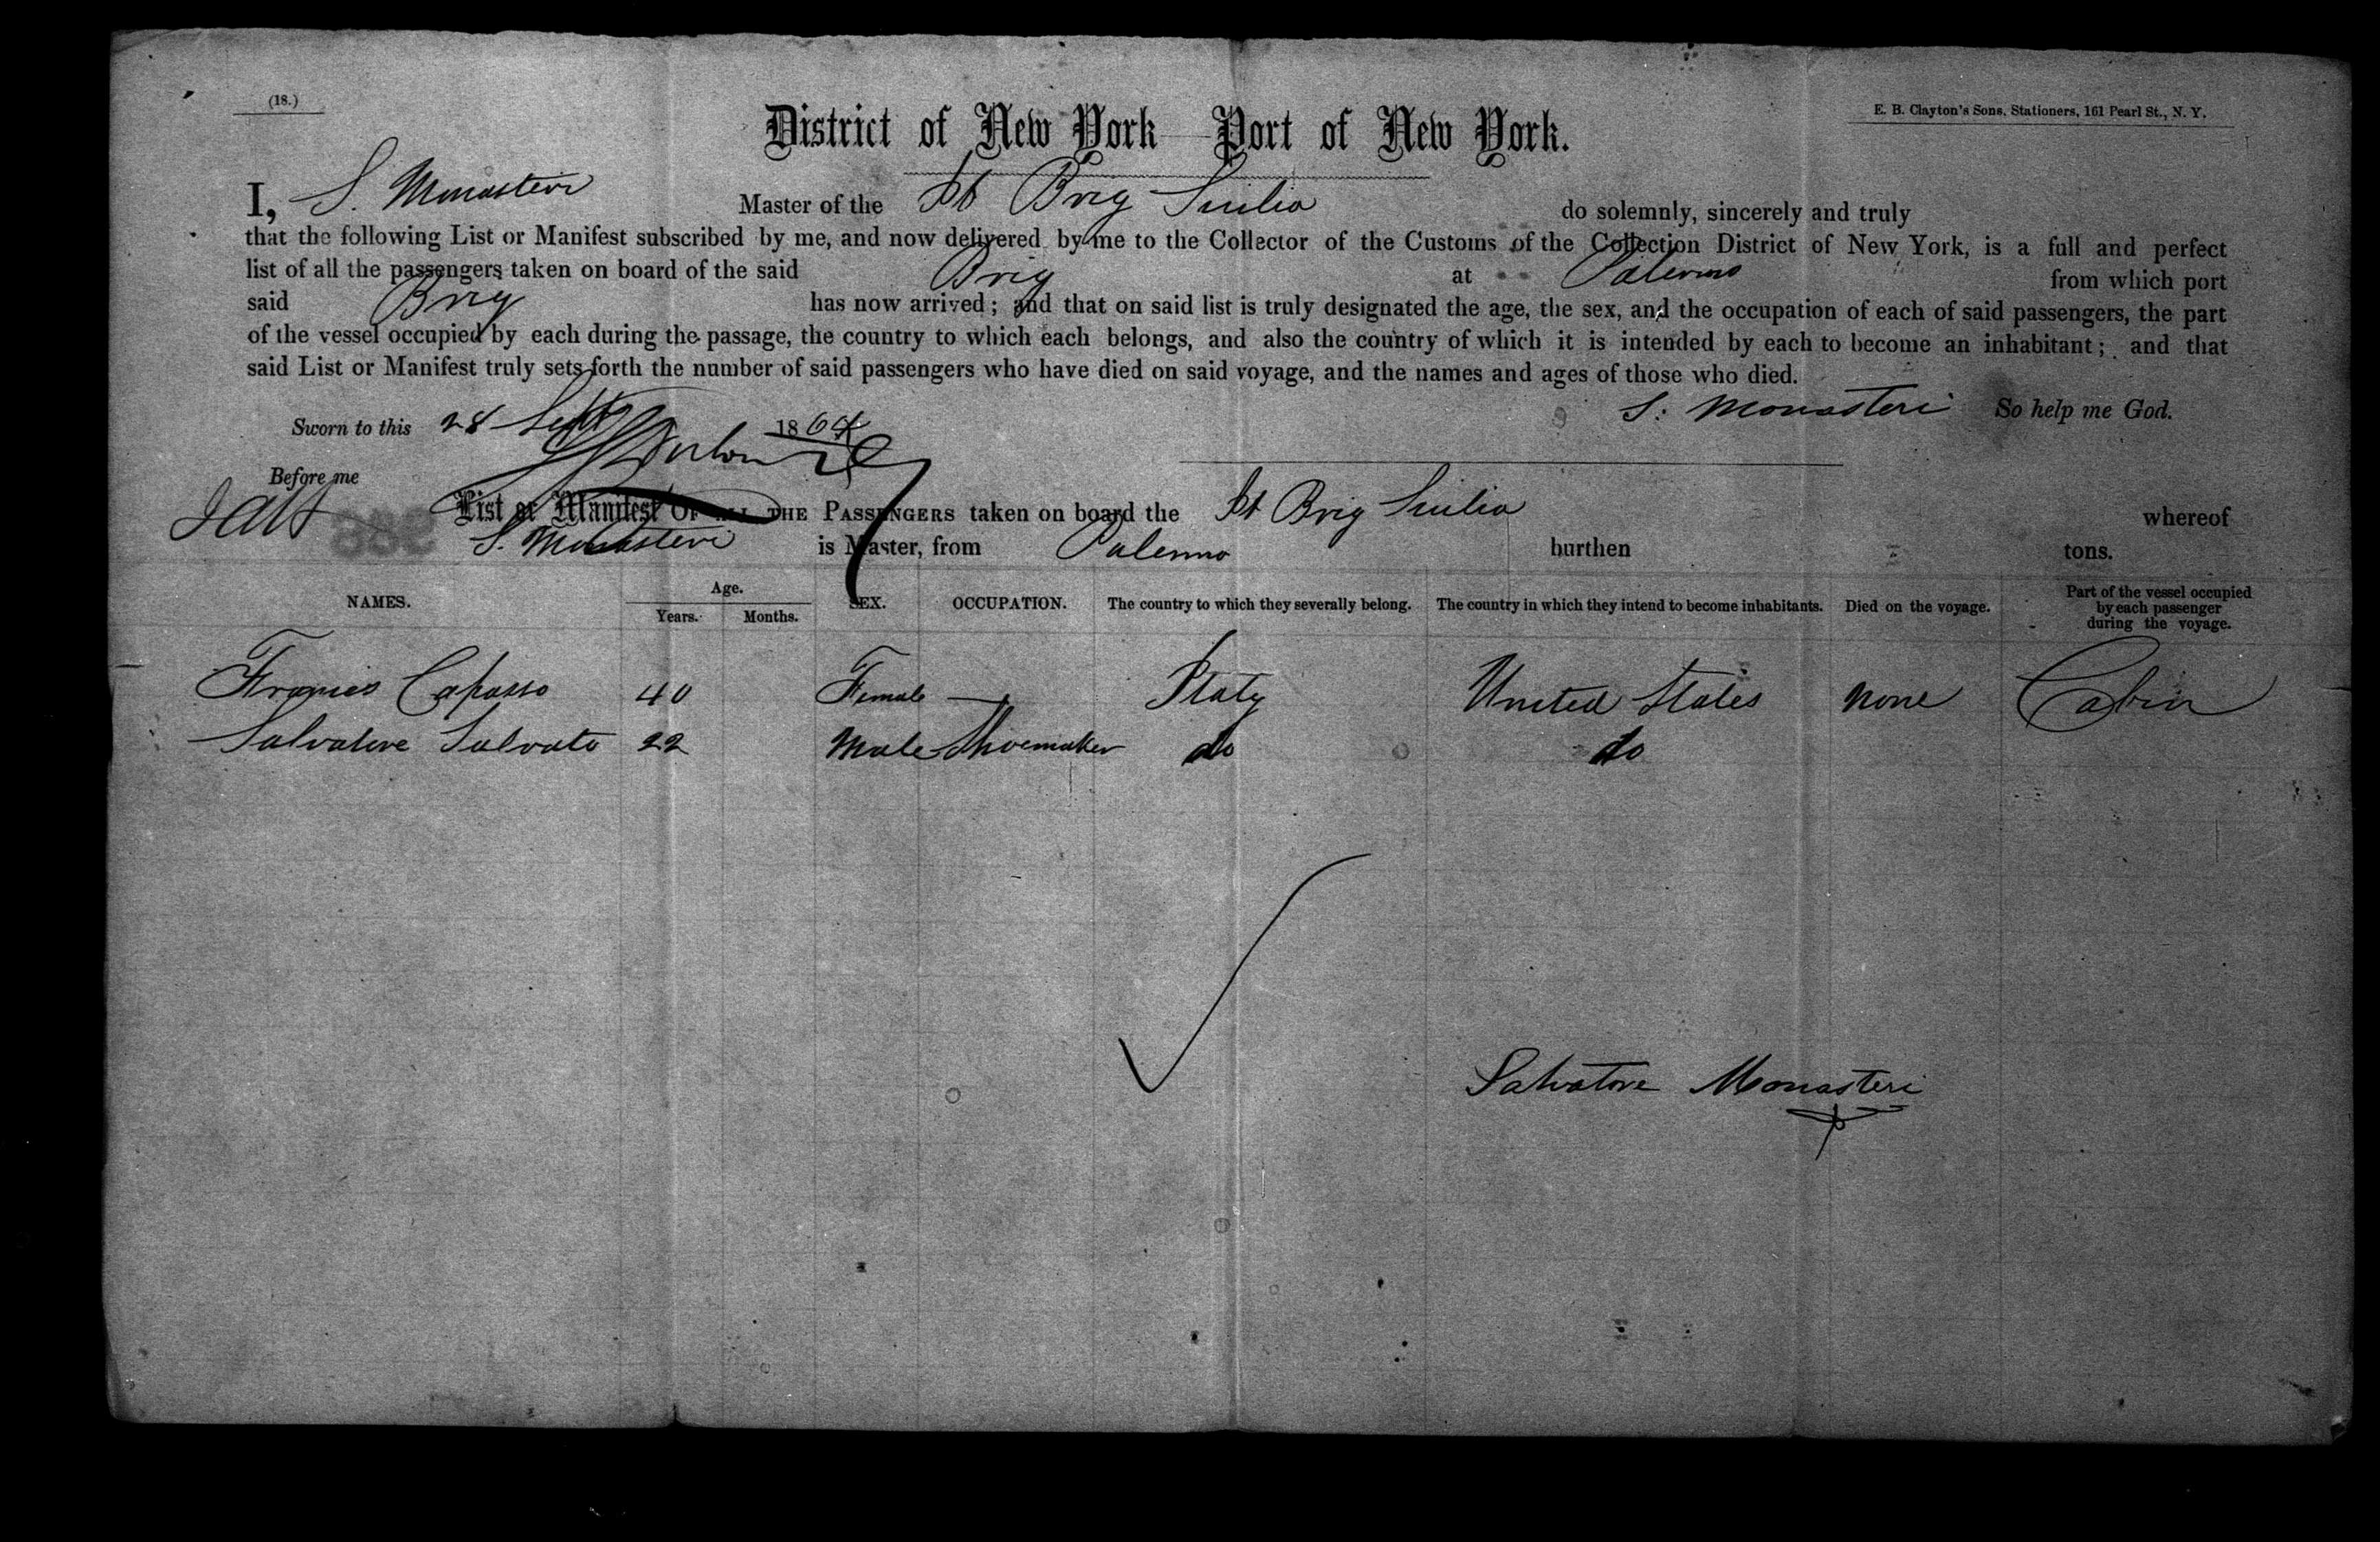 (18.)
E. B. Clayton's Sons, Stationers, 161 Pearl St., N. Y.
District of New York Port of New York.
I, S. Monasteri Master of the It Brig Sicilia do solemnly, sincerely and truly
that the following List or Manifest subscribed by me, and now delivered by me to the Collector of the Customs of the Collection District of New York, is a full and perfect
list of all the passengers taken on board of the said Brig at Palermo from which port
said Brig has now arrived; and that on said list is truly designated the age, the sex, and the occupation of each of said passengers, the part
of the vessel occupied by each during the passage, the country to which each belongs, and also the country of which it is intended by each to become an inhabitant; and that
said List or Manifest truly sets forth the number of said passengers who have died on said voyage, and the names and ages of those who died.
S. Monasteri So help me God.
Sworn to this 28 Sept 1864
Before me
List or Manifest OF ALL THE PASSENGERS taken on board the It Brig Sicilia whereof
S. Monasteri is Master, from Palermo burthen tons.
NAMES. Age. Years. Months. SEX. OCCUPATION. The country to which they severally belong. The country in which they intend to become inhabitants. Died on the voyage. Part of the vessel occupied by each passenger during the voyage.
Capasso 40 Female — Italy United States none Cabin
Salvatore Salvato 22 Male Shoemaker do do
Salvatore Monasteri